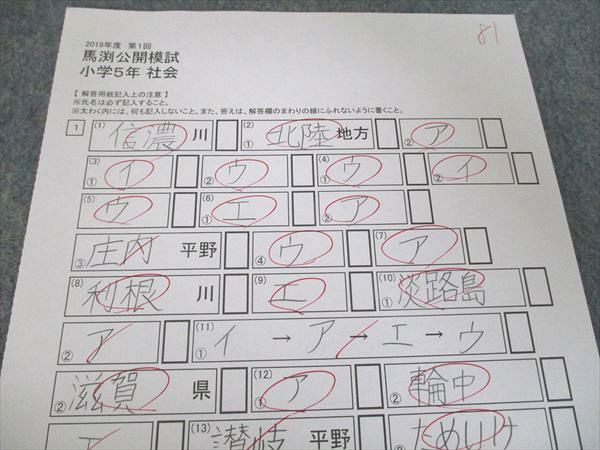 81
2019年度 第1回
馬渕公開模試
小学5年 社会
【 解答用紙記入上の注意 】
※氏名は必ず記入すること。
※太わく内には、何も記入しないこと。また、答えは、解答欄のまわりの線にふれないように書くこと。
1 (1) 信濃 川 (2) ① 北陸 地方 ② ア
(3) ① イ ② ウ (4) ① ウ ② イ
(5) ウ (6) ① エ ② ア
③ 庄内 平野 ④ ウ (7) ア
(8) 利根 川 (9) エ (10) ① 淡路島
② ア (11) ① イ → ア → エ → ウ
② 滋賀 県 (12) ① ア ② 輪中
エ (13) 讃岐 平野 ② ためいけ